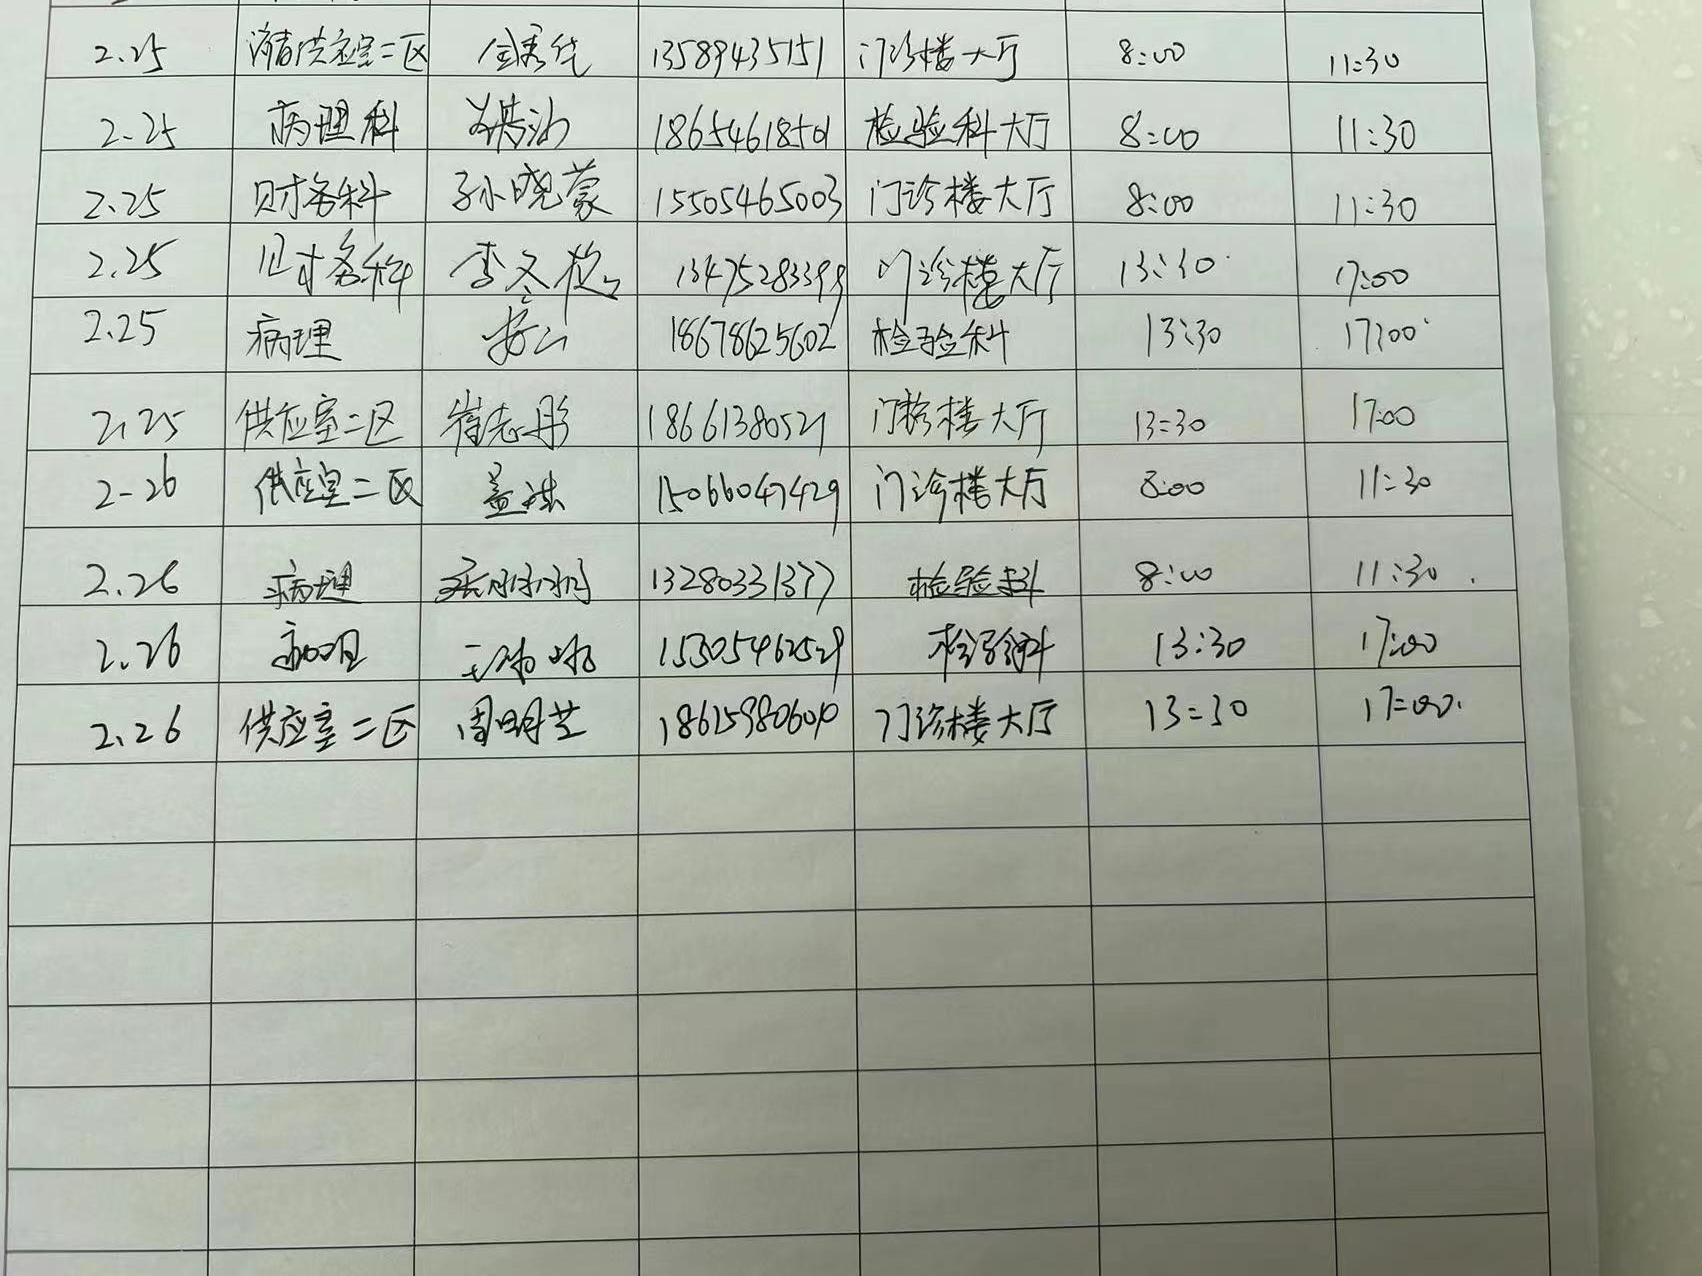 2.25 消毒供应室二区 13589435151 门诊楼大厅 8:00 11:30
2-25 病理科 18654618501 检验科大厅 8:00 11:30
2.25 财务科 孙晓蒙 15505465003 门诊楼大厅 8:00 11:30
2.25 财务科 李冬梅 13475283399 门诊楼大厅 13:30 17:00
2.25 病理 18678625602 检验科 13:30 17:00
2.25 供应室二区 崔志彤 18661380521 门诊楼大厅 13:30 17:00
2-26 供应室二区 盖 15066047429 门诊楼大厅 8:00 11:30
2.26 病理 13280331377 检验科 8:00 11:30
2.26 病理 15305462529 检验科 13:30 17:00
2.26 供应室二区 周明芝 门诊楼大厅 13:30 17:00